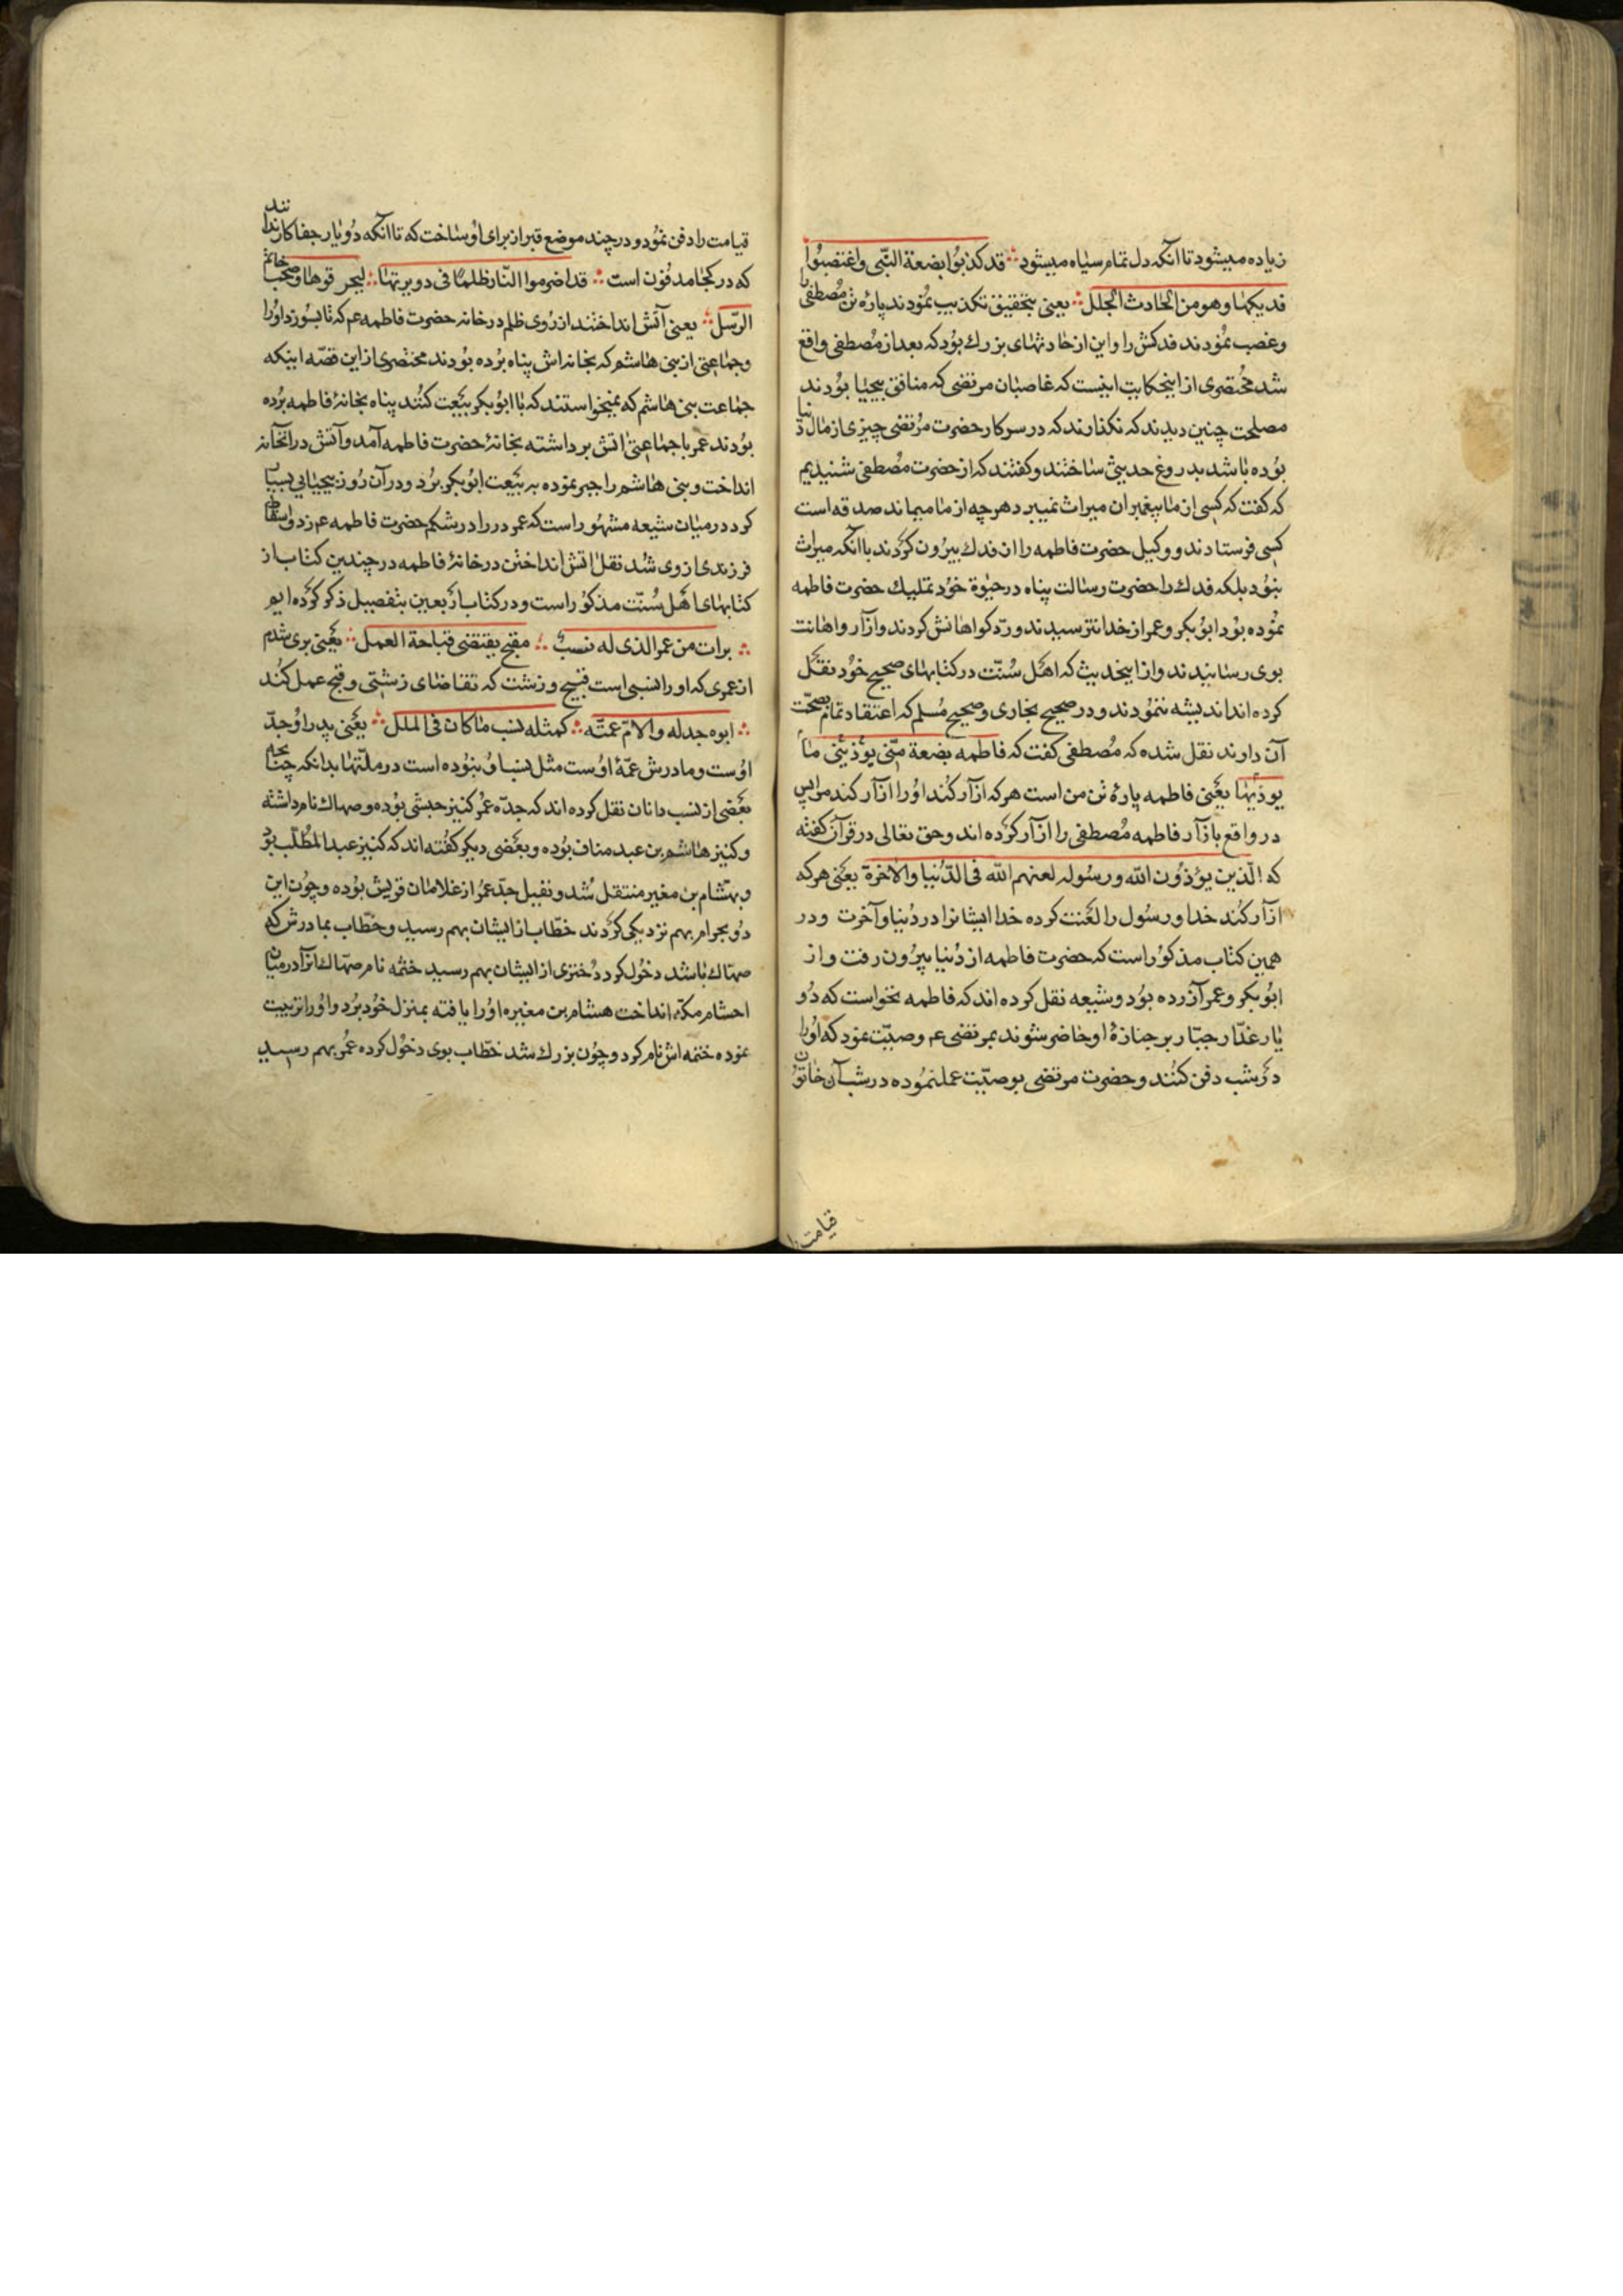 زیاده میشود تا انکه دل تمام سیاه میشود ∴ قد کذبوا بضعة النبّی واغتصبوا
فدیکها وهو من الحادث الجلل ∴ یعنی بتحقیق تکذیب نمودند پارۀ تن مصطفی را
وغصب نمودند فدکش را واین از حادثهای بزرك بود که بعد از مصطفی واقع
شد مختصری از اینحکایت اینست که غاصبان مرتضی که منافق بیحیا بودند
مصلحت چنین دیدند که نکذارند که در سرکار حضرت مرتضی چیزی از مال دنیا
بوده باشد بدروغ حدیثی ساختند وکفتند که از حضرت مصطفی شنیدیم
که کفت که کسی از ما پیغمبران میراث نمیبرد هرچه از ما میماند صدقه است
کسی فرستادند ووکیل حضرت فاطمه را از فدك بیرون کردند باانکه میراث
نبود بلکه فدك را حضرت رسالت پناه در حیوة خود تملیك حضرت فاطمه
نموده بود ابوبکر وعمر از خدا نترسیدند ورد کواهانش کردند وآزار واهانت
بوی رسانیدند واز اینحدیث که اهل سنّت در کتابهای صحیح خود نقل
کرده اند اندیشه ننمودند ودر صحیح بخاری وصحیح مسلم که اعتقاد تمام بصحّت
آن دارند نقل شده که مصطفی کفت که فاطمه بضعة منّی یؤذینی ما
یوذیها یعنی فاطمه پارۀ تن من است هرکه ازآر کند اورا ازآر کند مرا پس
در واقع بازآر فاطمه مصطفی را ازآر کرده اند وحق تعالی در قرآن کفته
که الّذین یؤذون الله ورسوله لعنهم الله فی الدّنیا والاخرة یعنی هرکه
ازآر کند خدا ورسول را لعنت کرده خدا ایشانرا در دنیا وآخرت ودر
همین کتاب مذکور است که حضرت فاطمه از دنیا بیرون رفت واز
ابوبکر وعمر آزرده بود وشیعه نقل کرده اند که فاطمه نخواست که دو
یار غدّار جبّار بر جنازۀ او حاضر شوند بمرتضی عم وصیّت نمود که اورا
در شب دفن کنند وحضرت مرتضی بوصیّت عمل نموده در شب آن خاتون
قیامت را
قیامت را دفن نمود ودر چند موضع قبر از برای او ساخت که تا انکه دو یار جفاکار ندانند
که در کجا مدفون است ∴ قد اضرموا النّار ظلمًا فی دویرتها ∴ لیحرقوها وصحب خاتم
الرّسل ∴ یعنی آتش انداختند از روی ظلم در خانه حضرت فاطمه عم که تا بسوزد اورا
وجماعتی از بنی هاشم که بخانه اش پناه برده بودند مختصری از این قصّه اینکه
جماعت بنی هاشم که نمیخواستند که با ابوبکر بیعت کنند پناه بخانۀ فاطمه برده
بودند عمر با جماعتی اتش برداشته بخانۀ حضرت فاطمه آمد وآتش در انخانه
انداخت وبنی هاشم را جبر نموده به بیعت ابوبکر برد ودر آن روز بیحیایی بسیار
کرد در میان شیعه مشهور است که عمر در را در شکم حضرت فاطمه عم زد واسقاط
فرزندی از وی شد نقل اتش انداختن در خانۀ فاطمه در چندین کتاب از
کتابهای اهل سنّت مذکور است ودر کتاب اربعین بتفصیل ذکر کرده ایم
∴ برات من عمر الذی له نسب ∴ مقبح یقتضی قباحة العمل ∴ یعنی بری شدم
از عمری که اورا نسبی است قبیح وزشت که تقاضای زشتی وقبح عمل کند
∴ ابوه جد له والامّ عمّته ∴ کمثله نسب ما کان فی الملل ∴ یعنی پدر او جدّ
اوست ومادرش عمّۀ اوست مثل نسب او نبوده است در ملّتها بدانکه چنانچه
بعضی از نسب دانان نقل کرده اند که جدّه عمر کنیز حبشی بوده وصهاك نام داشته
وکنیز هاشم بن عبد مناف بوده وبعضی دیکر کفته اند که کنیز عبدالمطّلب بود
وبهشام بن مغیر منتقل شد ونفیل جدّ عمر از غلامان قریش بوده وچون این
دو بحرام بهم نزدیکی کردند خطّاب از ایشان بهم رسید وخطّاب بمادرش که
صهاك باشد دخول کرد دختری از ایشان بهم رسید ختمه نام صهاك انرا در میان
احشام مکّه انداخت هشام بن مغیره اورا یافته بمنزل خود برد واورا تربیت
نموده ختمه اش نام کرد وچون بزرك شد خطّاب بوی دخول کرده عمر بهم رسید